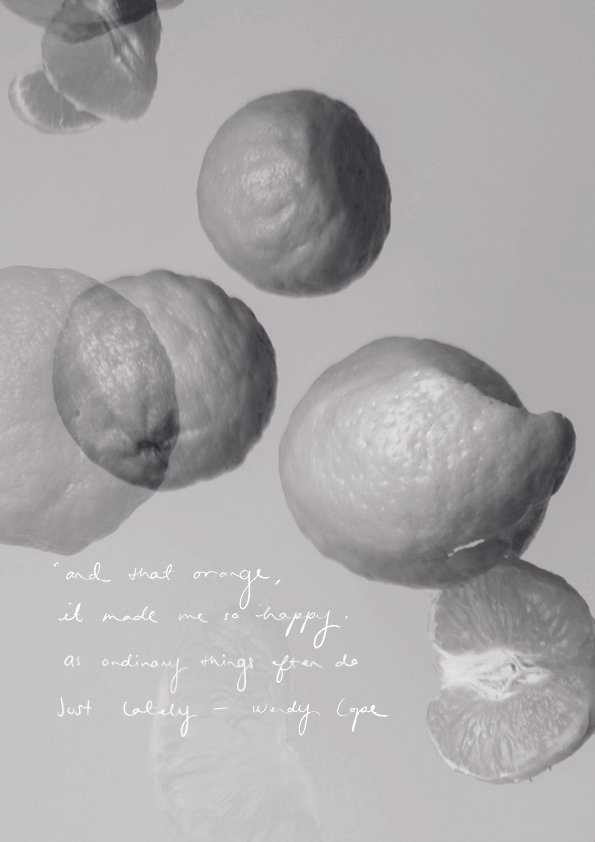 "and that orange,
it made me so happy.
as ordinary things often do
Just lately — Wendy Cope